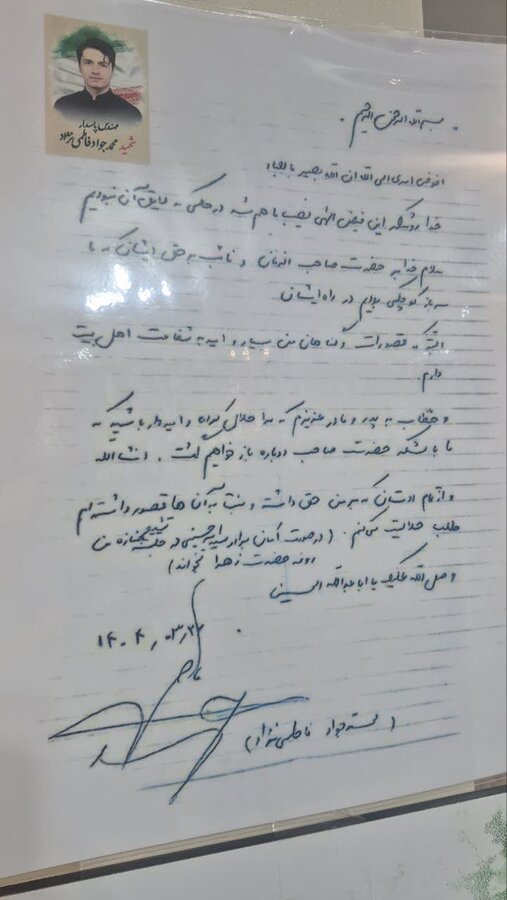 مهندس پاسدار
شهید محمدجواد فاطمی نژاد
بسم الله الرحمن الرحیم
افوض امری الی الله ان الله بصیر بالعباد
خدا رو شکر این فیض الهی نصیب ما هم شد در حالی که لایق آن نبودیم
سلام خدا بر حضرت صاحب الزمان و نائب بر حق ایشان که ما
سرباز کوچکی بودیم در راه ایشان
البته قصورات و گناهان من بسیار و امید به شفاعت اهل بیت
دارم.
و خطاب به پدر و مادر عزیزم که مرا حلال کنند و امیدوار باشید که
ما با لشکر حضرت صاحب دوباره باز خواهیم گشت. انشاالله
و از تمام دوستان که بر من حق داشته و نسبت به آن ها قصور داشته ام
طلب حلالیت می کنم. (در صورت امکان برادر سید امیر حسینی در تشییع جنازه من
روضه حضرت زهرا بخواند)
و صلی الله علیک یا اباعبدالله الحسین
۱۴۰۴،۰۳،۲۳
(سید جواد فاطمی نژاد)